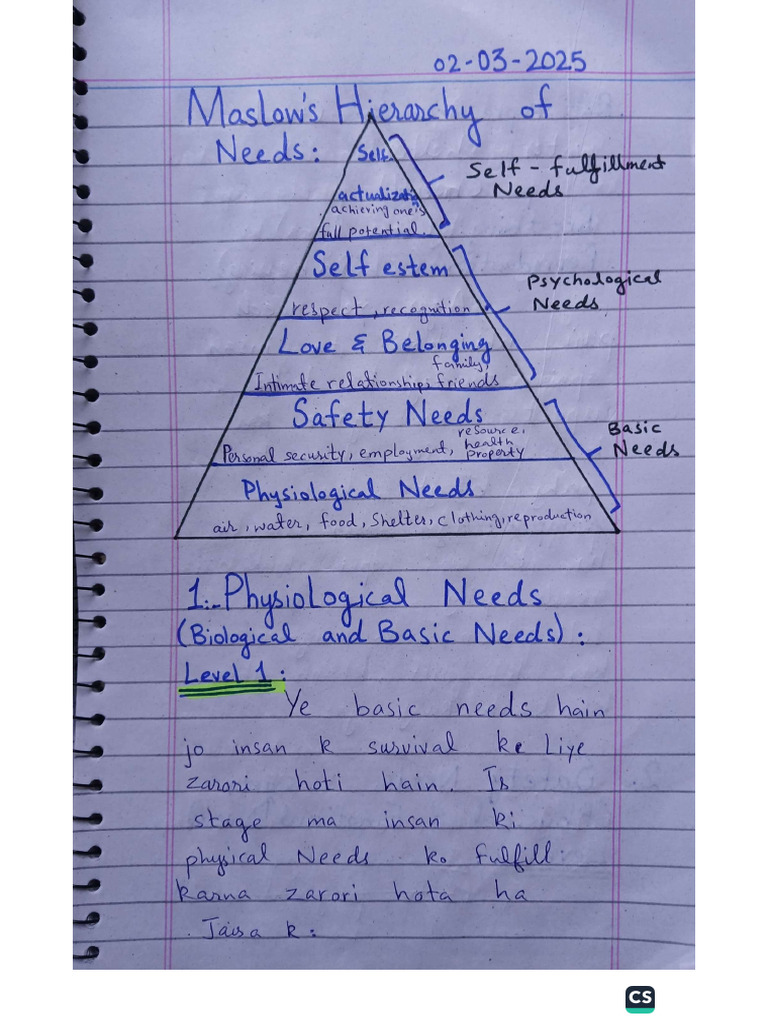 02-03-2025
Maslow's Hierarchy of
Needs:
Self
actualizati
achieving one's
full potential.
Self-fulfillment
Needs
Self estem
respect, recognition
Psychological
Needs
Love & Belonging
family,
Intimate relationship, friends
Safety Needs
resource,
health
Personal security, employment, property
Basic
Needs
Physiological Needs
air, water, food, Shelter, clothing, reproduction
1:- Physiological Needs
(Biological and Basic Needs):
Level 1:
Ye basic needs hain
jo insan k survival ke Liye
zarori hoti hain. Is
stage ma insan ki
physical Needs ko fulfill
karna zarori hota ha
. Jaisa k:
CS